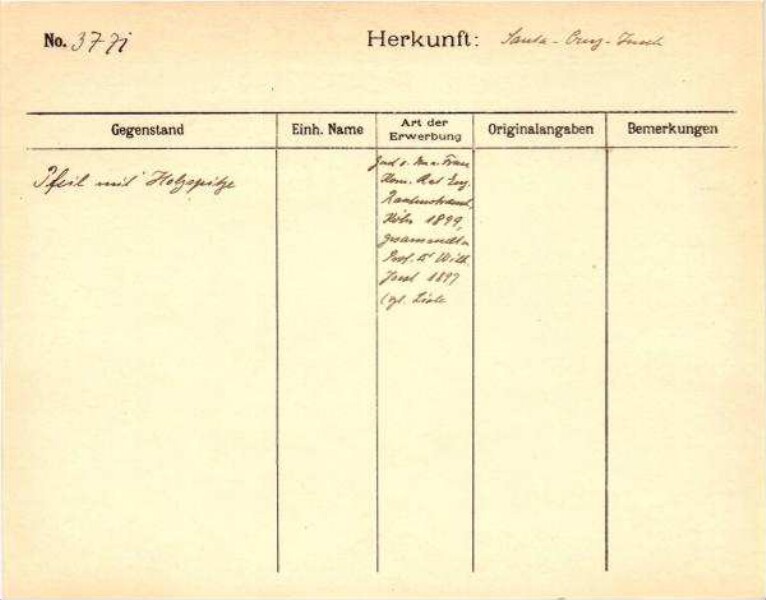 No. 377i
Herkunft: Santa-Cruz-Inseln
Gegenstand
Einh. Name
Art der Erwerbung
Originalangaben
Bemerkungen
Pfeil mit Holzspitze
Frau
Kom. Rat Eug.
Rautenstrauch,
Köln 1899,
gesammelt v.
Prof. Dr Wilh.
Joest 1897
(vgl. Liste